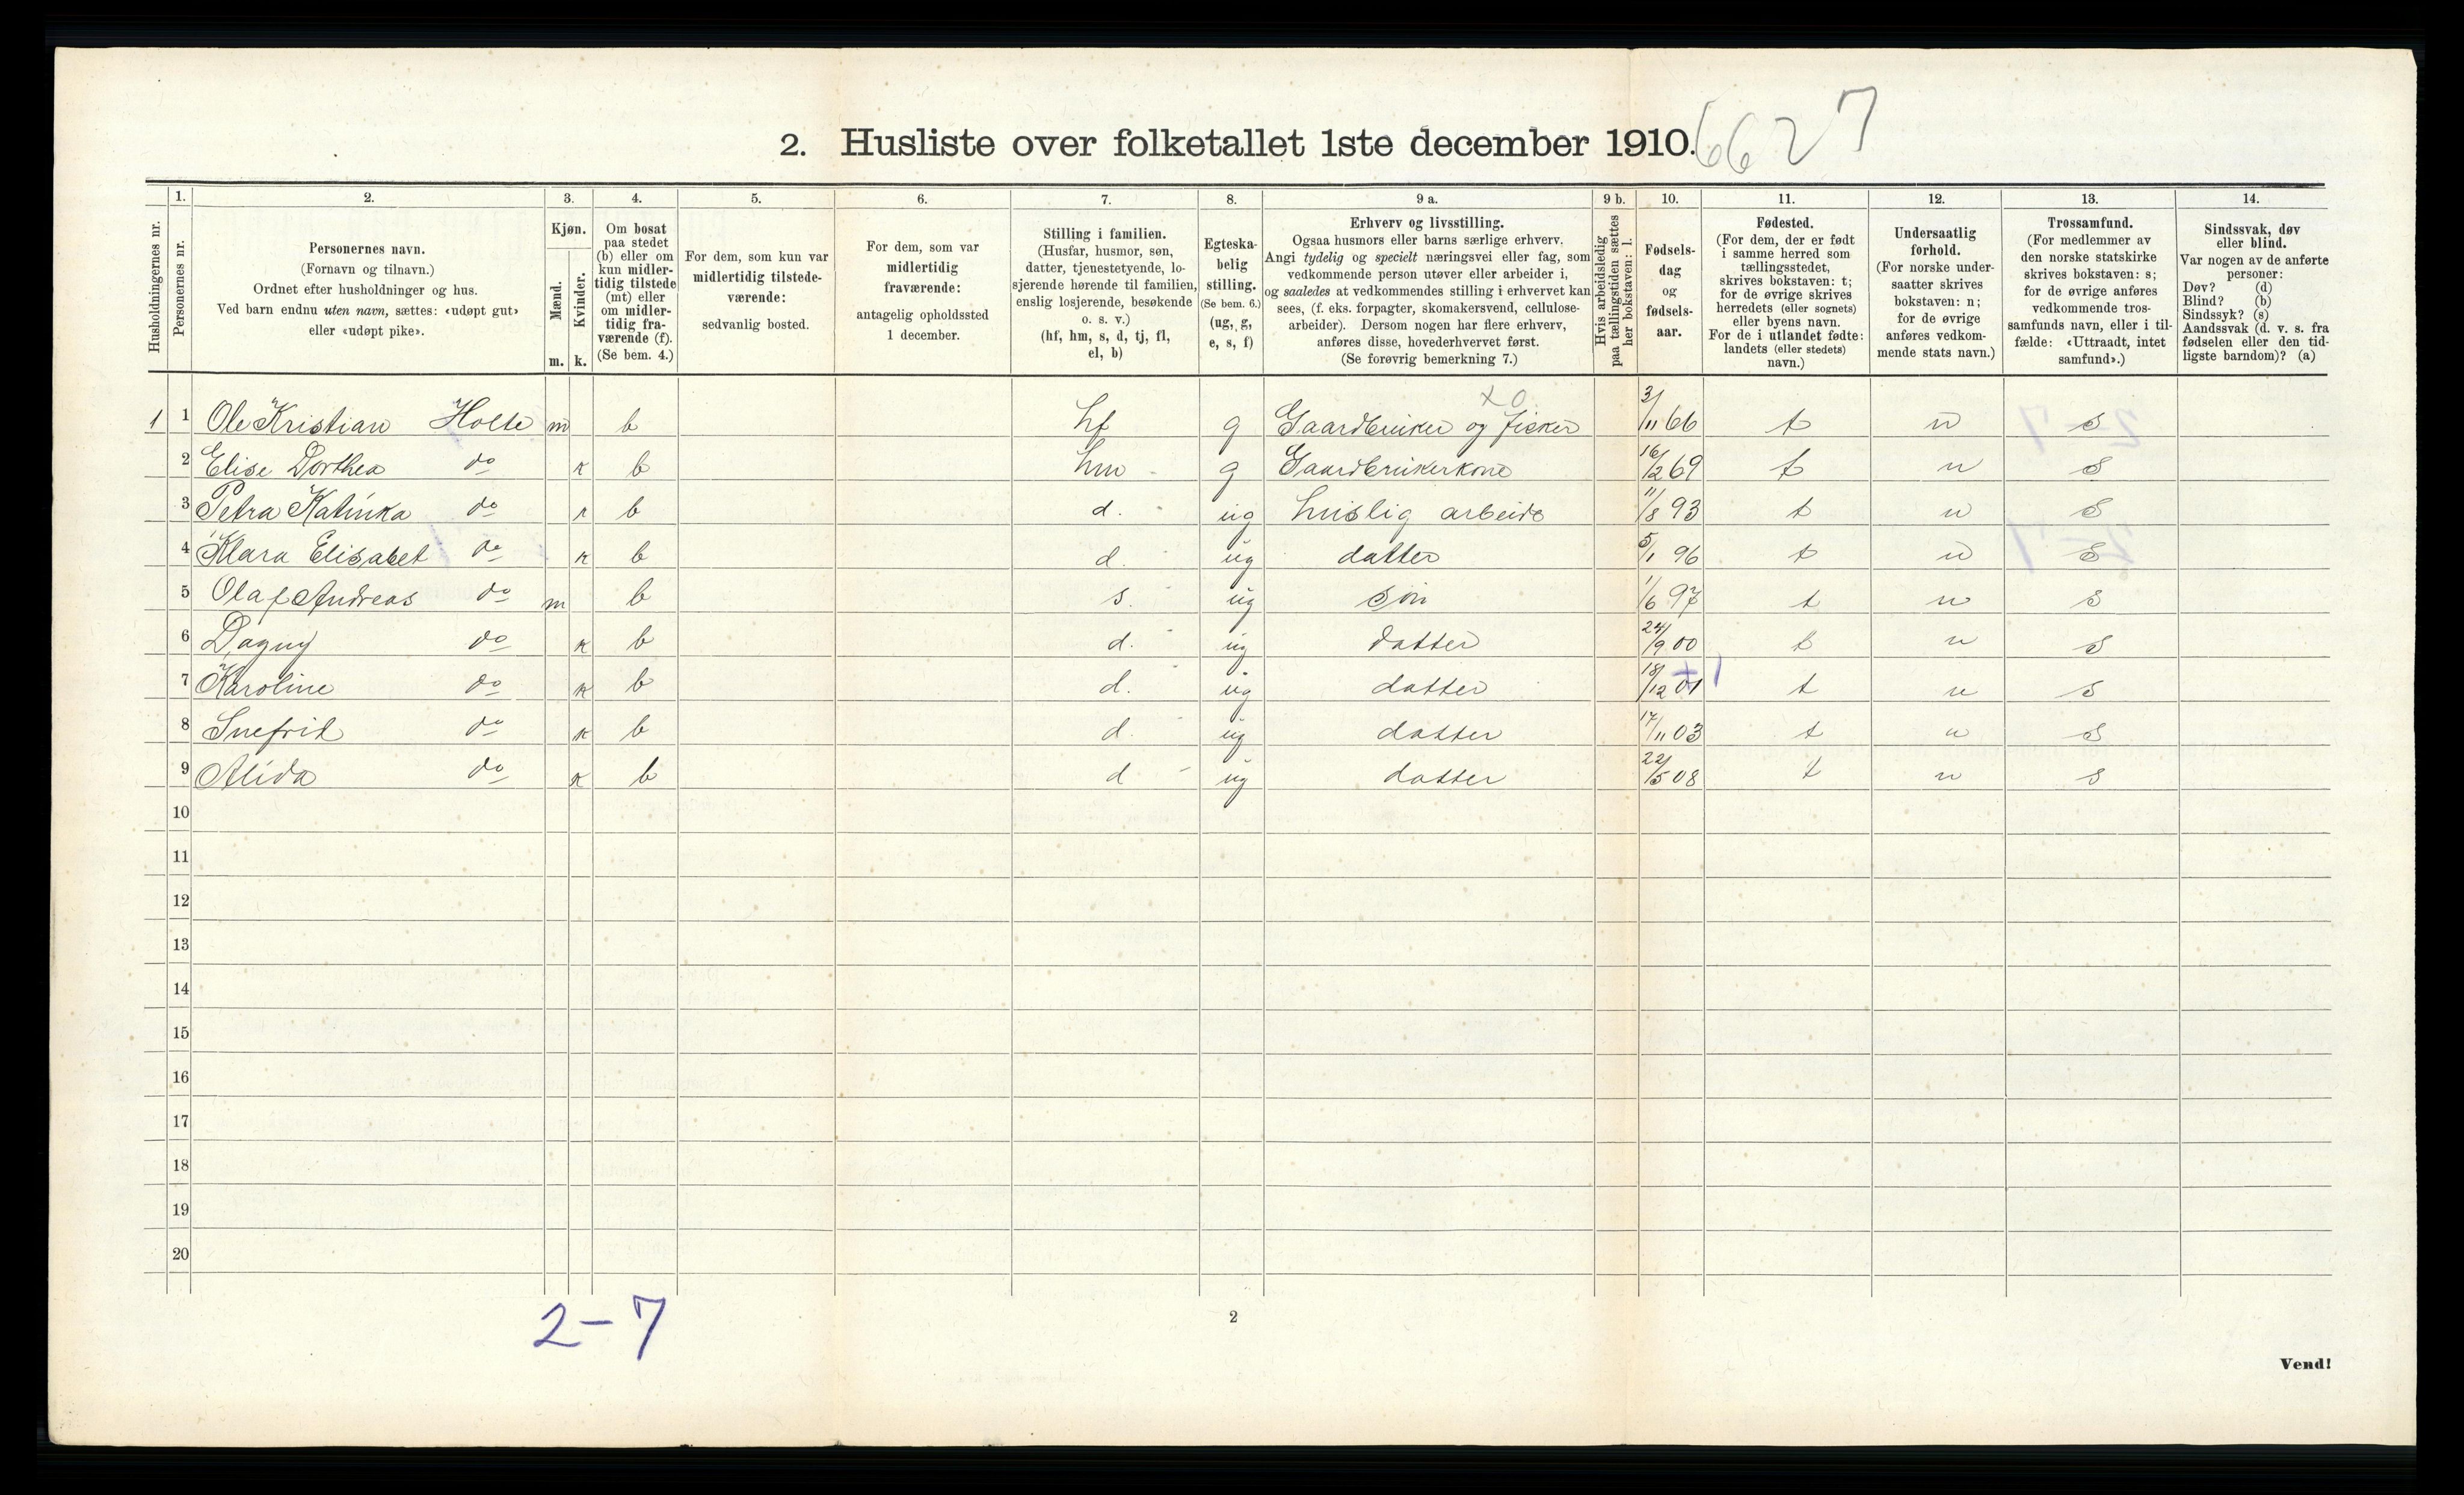 2. Husliste over folketallet 1ste december 1910.
6627
Husholdningernes nr.
1.
Personernes nr.
2.
Personernes navn.
(Fornavn og tilnavn.)
Ordnet efter husholdninger og hus.
Ved barn endnu uten navn, sættes: «udøpt gut»
eller «udøpt pike».
3.
Kjøn.
Mænd.
m.
Kvinder.
k.
4.
Om bosat
paa stedet
(b) eller om
kun midler-
tidig tilstede
(mt) eller
om midler-
tidig fra-
værende (f).
(Se bem. 4.)
5.
For dem, som kun var
midlertidig tilstede-
værende:
sedvanlig bosted.
6.
For dem, som var
midlertidig
fraværende:
antagelig opholdssted
1 december.
7.
Stilling i familien.
(Husfar, husmor, søn,
datter, tjenestetyende, lo-
sjerende hørende til familien,
enslig losjerende, besøkende
o. s. v.)
(hf, hm, s, d, tj, fl,
el, b)
8.
Egteska-
belig
stilling.
(Se bem. 6.)
(ug, g,
e, s, f)
9 a.
Erhverv og livsstilling.
Ogsaa husmors eller barns særlige erhverv.
Angi tydelig og specielt næringsvei eller fag, som
vedkommende person utøver eller arbeider i,
og saaledes at vedkommendes stilling i erhvervet kan
sees, (f. eks. forpagter, skomakersvend, cellulose-
arbeider). Dersom nogen har flere erhverv,
anføres disse, hovederhvervet først.
(Se forøvrig bemerkning 7.)
9 b.
Hvis arbeidsledig
paa tællingstiden sættes
her bokstaven: l.
10.
Fødsels-
dag
og
fødsels-
aar.
11.
Fødested.
(For dem, der er født
i samme herred som
tællingsstedet,
skrives bokstaven: t;
for de øvrige skrives
herredets (eller sognets)
eller byens navn.
For de i utlandet fødte:
landets (eller stedets)
navn.)
12.
Undersaatlig
forhold.
(For norske under-
saatter skrives
bokstaven: n;
for de øvrige
anføres vedkom-
mende stats navn.)
13.
Trossamfund.
(For medlemmer av
den norske statskirke
skrives bokstaven: s;
for de øvrige anføres
vedkommende tros-
samfunds navn, eller i til-
fælde: «Uttraadt, intet
samfund».)
14.
Sindssvak, døv
eller blind.
Var nogen av de anførte
personer:
Døv? (d)
Blind? (b)
Sindssyk? (s)
Aandssvak (d. v. s. fra
fødselen eller den tid-
ligste barndom)? (a)
x 0
1 1 Ole Kristian Holte m b hf g Gaardbruker og fisker 3/11 66 t n s
2 Elise Dorthea do k b hm g Gaardbrukerkone 16/12 69 t n s
3 Petra Katinka do k b d. ug huslig arbeide 11/8 93 t n s
4 Klara Elisabet do k b d. ug datter 5/1 96 t n s
5 Olaf Andreas do m b s. ug søn 1/6 97 t n s
6 Dagny do k b d. ug datter 24/9 00 t n s
7 Karoline do k b d. ug datter 18/12 01 t n s
8 Snefrid do k b d. ug datter 17/11 03 t n s
9 Alida do k b d ug datter 22/5 08 t n s
10
11
12
13
14
15
16
17
18
19
20
2-7
2
Vend!